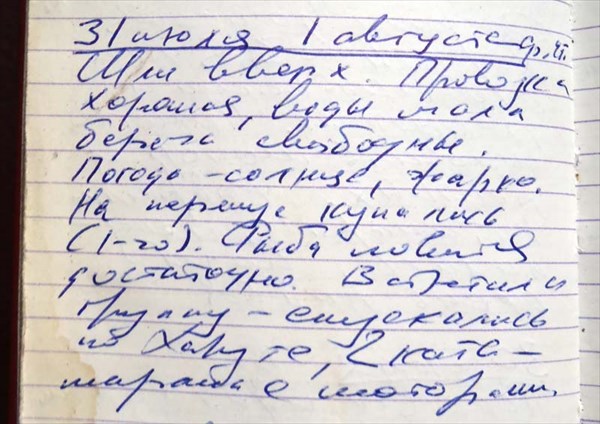 31 июля 1 августа ср, чт.
Шли вверх. Проводка
хорошая, воды мало
берега свободны.
Погода - солнце, жарко.
На перекусе купались
(1-го). Рыба ловится
достаточно. Встретили
группу - спускались
по Харуте, 2 ката-
марана с моторами.